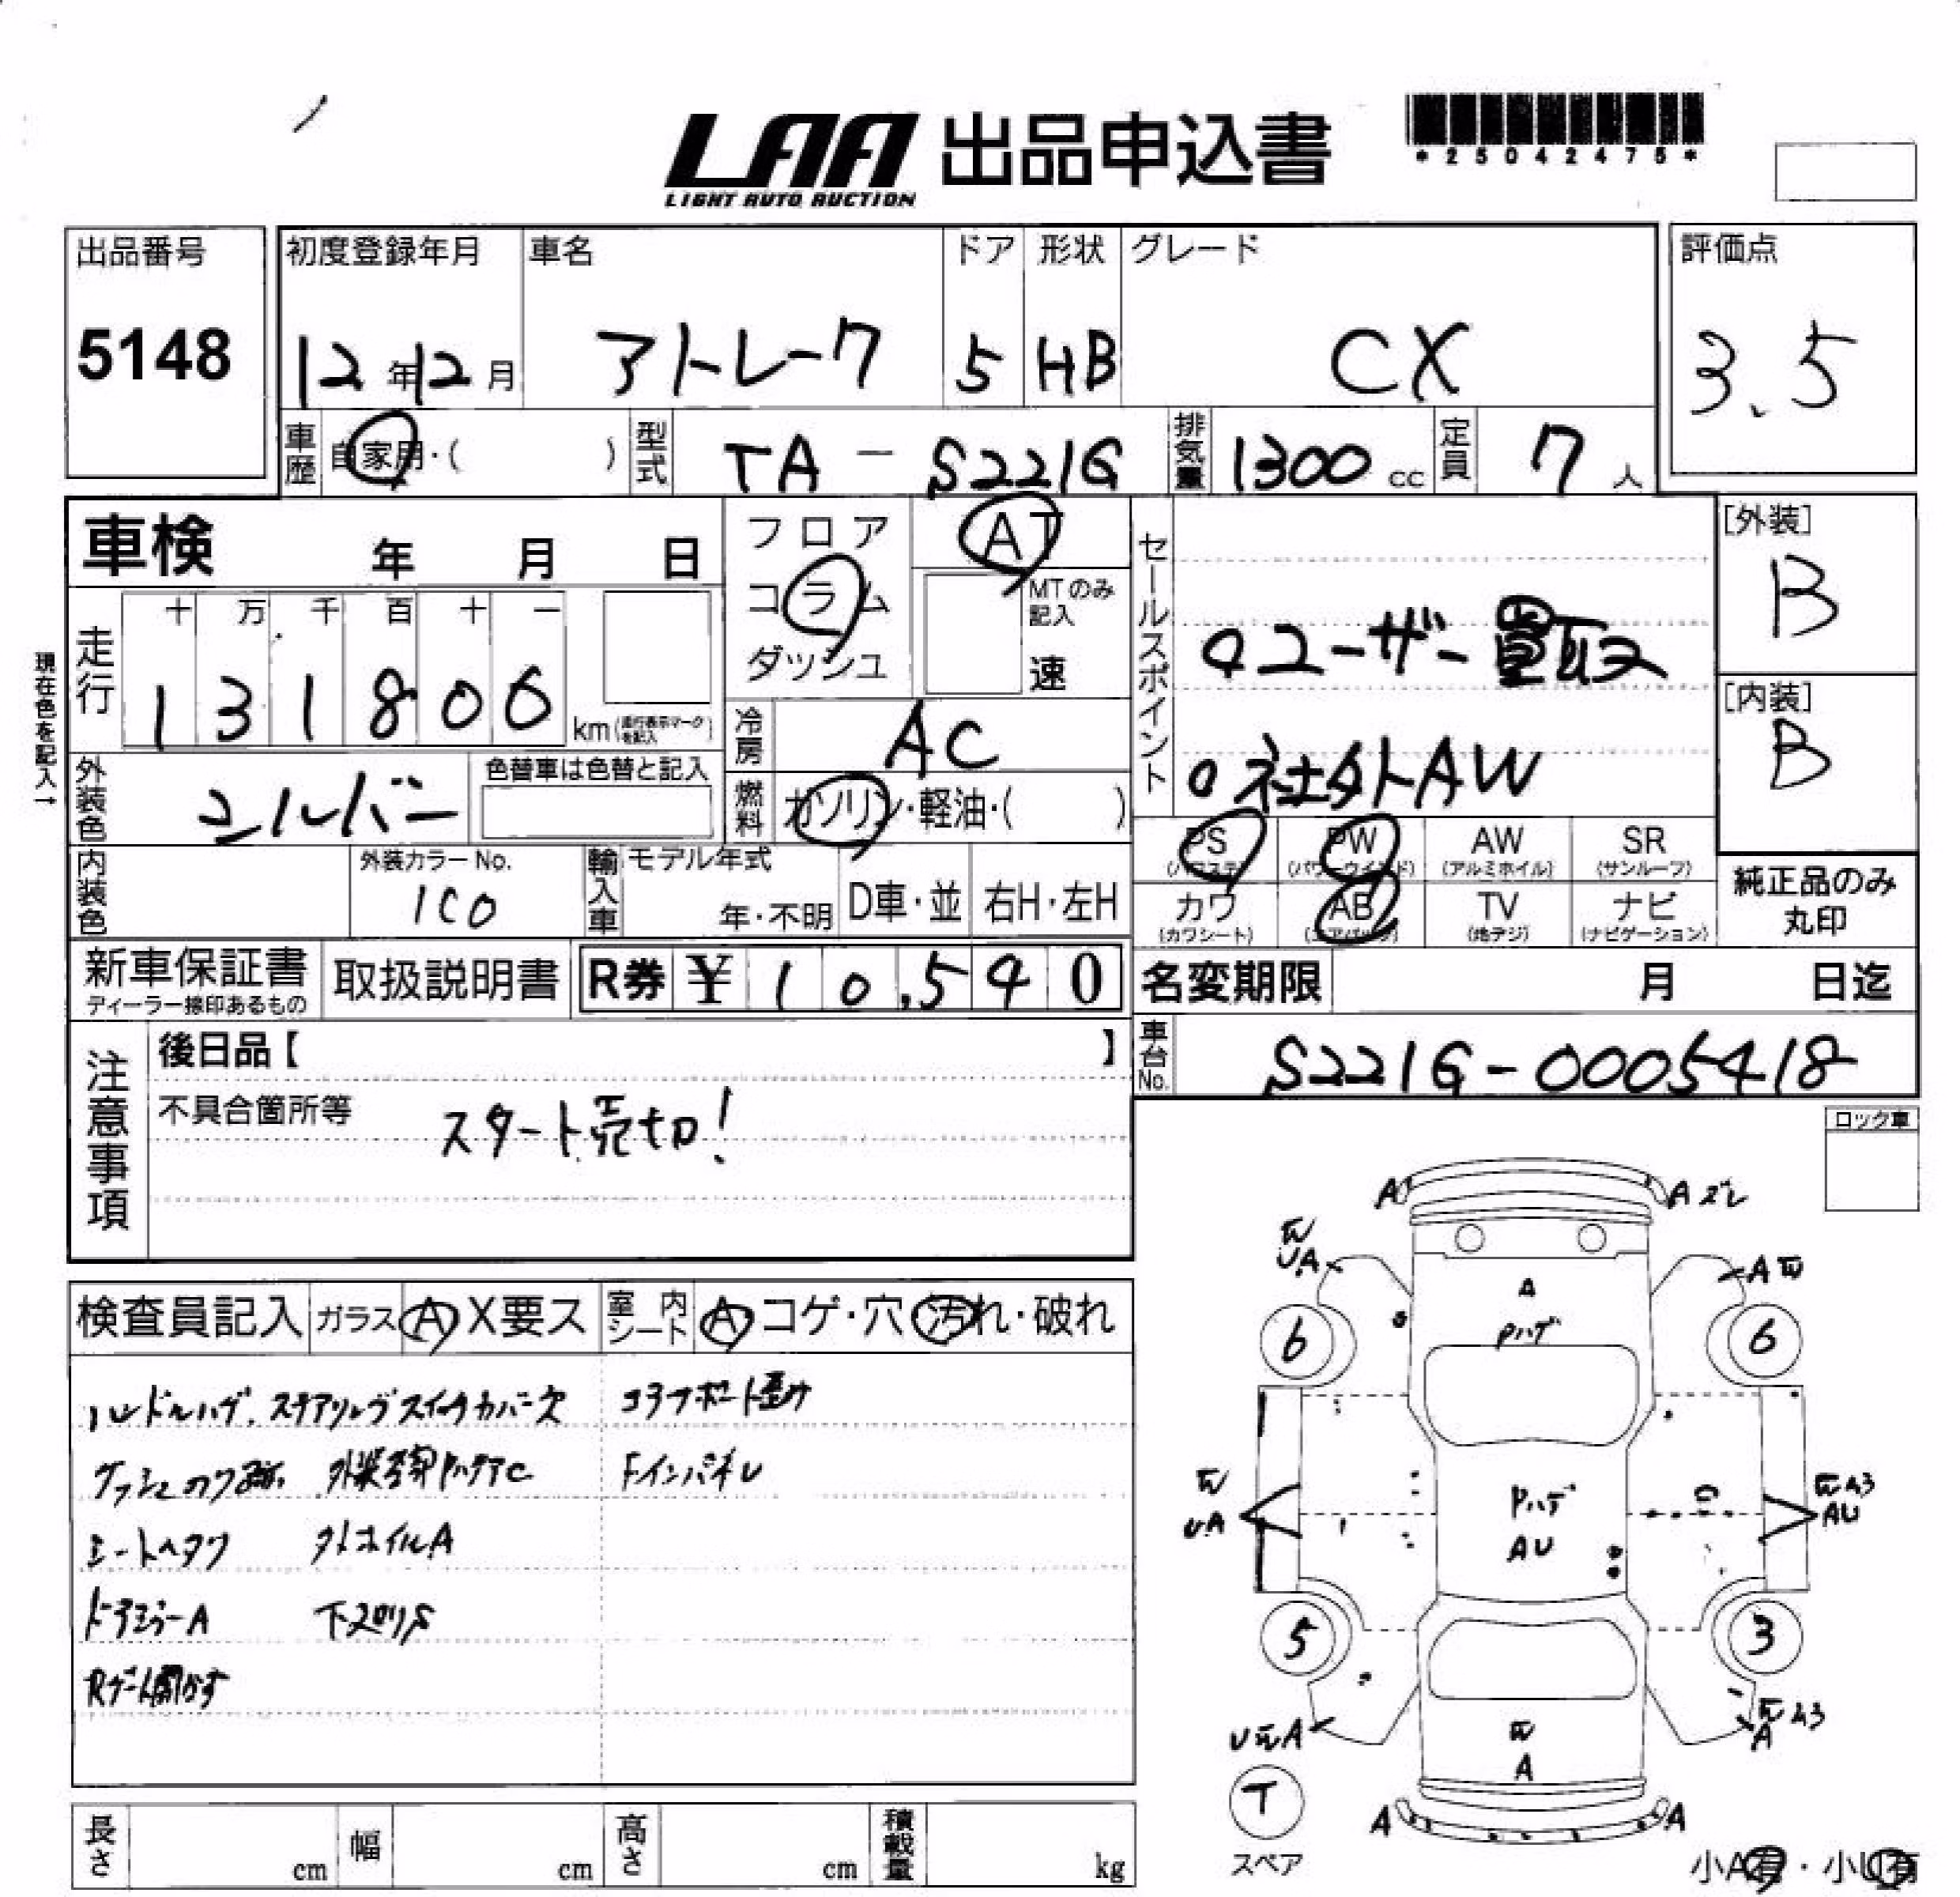 LAA 出品申込書
LIGHT AUTO AUCTION
*25042475*
出品番号 初度登録年月 車名 ドア 形状 グレード 評価点
5148 12年12月 アトレーク 5 HB CX 3.5
車歴 自家用・( ) 型式 TA-S221G 排気量 1300cc 定員 7人
車検 年 月 日 フロア AT セールスポイント [外装]
コラム MTのみ記入 B
ダッシュ 速
走行 十 万 千 百 十 一
131806 km (走行表示マークを記入)
○ユーザー買取
[内装]
冷房 AC B
○社外AW
現在色を記入→
外装色 シルバー 色替車は色替と記入 燃料 ガソリン・軽油・( )
PS PW AW SR
(パワステ) (パワーウインド) (アルミホイル) (サンルーフ)
カワ AB TV ナビ
(カワシート) (エアバッグ) (地デジ) (ナビゲーション)
純正品のみ
丸印
内装色 外装カラーNo. 輸入車 モデル年式
1C0 年・不明 D車・並 右H・左H
新車保証書 取扱説明書 R券 ¥10,540 名変期限 月 日迄
ディーラー捺印あるもの
車台No. S221G-0005418
注意事項 後日品【 】
不具合箇所等 スタート売切!
ロック車
検査員記入 ガラス A X要ス 室内シート A コゲ・穴 汚れ・破れ
ハンドルハゲ. ステアリングスイッチカバー欠 コアサポート歪み
外装各部 FインパネU
シートヘタリ 外ホイルA
ドアミラーA 下廻りS
A A ズレ
UA A
A
Pハゲ
6 6
UA Pハゲ AU
AU
5 3
U A A
A
T
スペア
A A
小A有・小U有
長さ cm 幅 cm 高さ cm 積載量 kg